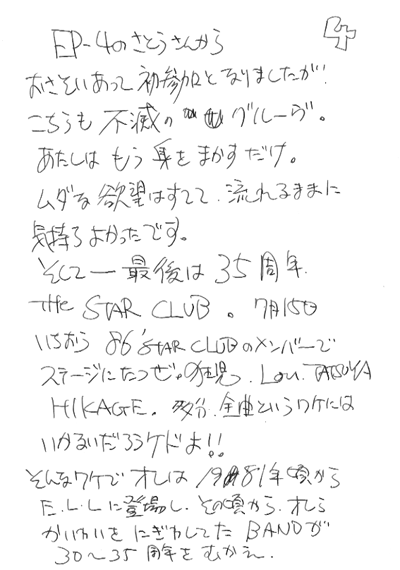 4
EP-4のさとうさんから
おさそいあって初参加となりましたが!
こちらも不滅の グルーヴ。
あたしは もう 身をまかすだけ。
ムダな欲望はすてて、流れるままに
気持ちよかったです。
そして一最後は 35周年
THE STAR CLUB 。 7月15日
いちおう 86'STAR CLUBのメンバーで
ステージにたつぜ。 . Lou. TATSUYA
HIKAGE. 多分、全曲というワケには
いかないだろうケドよ!!
そんなワケで オレは 1981年頃から
E.L.Lに登場し、その頃から、オレら
かいわいを にぎわしてた BANDが
30〜35 周年をむかえ、